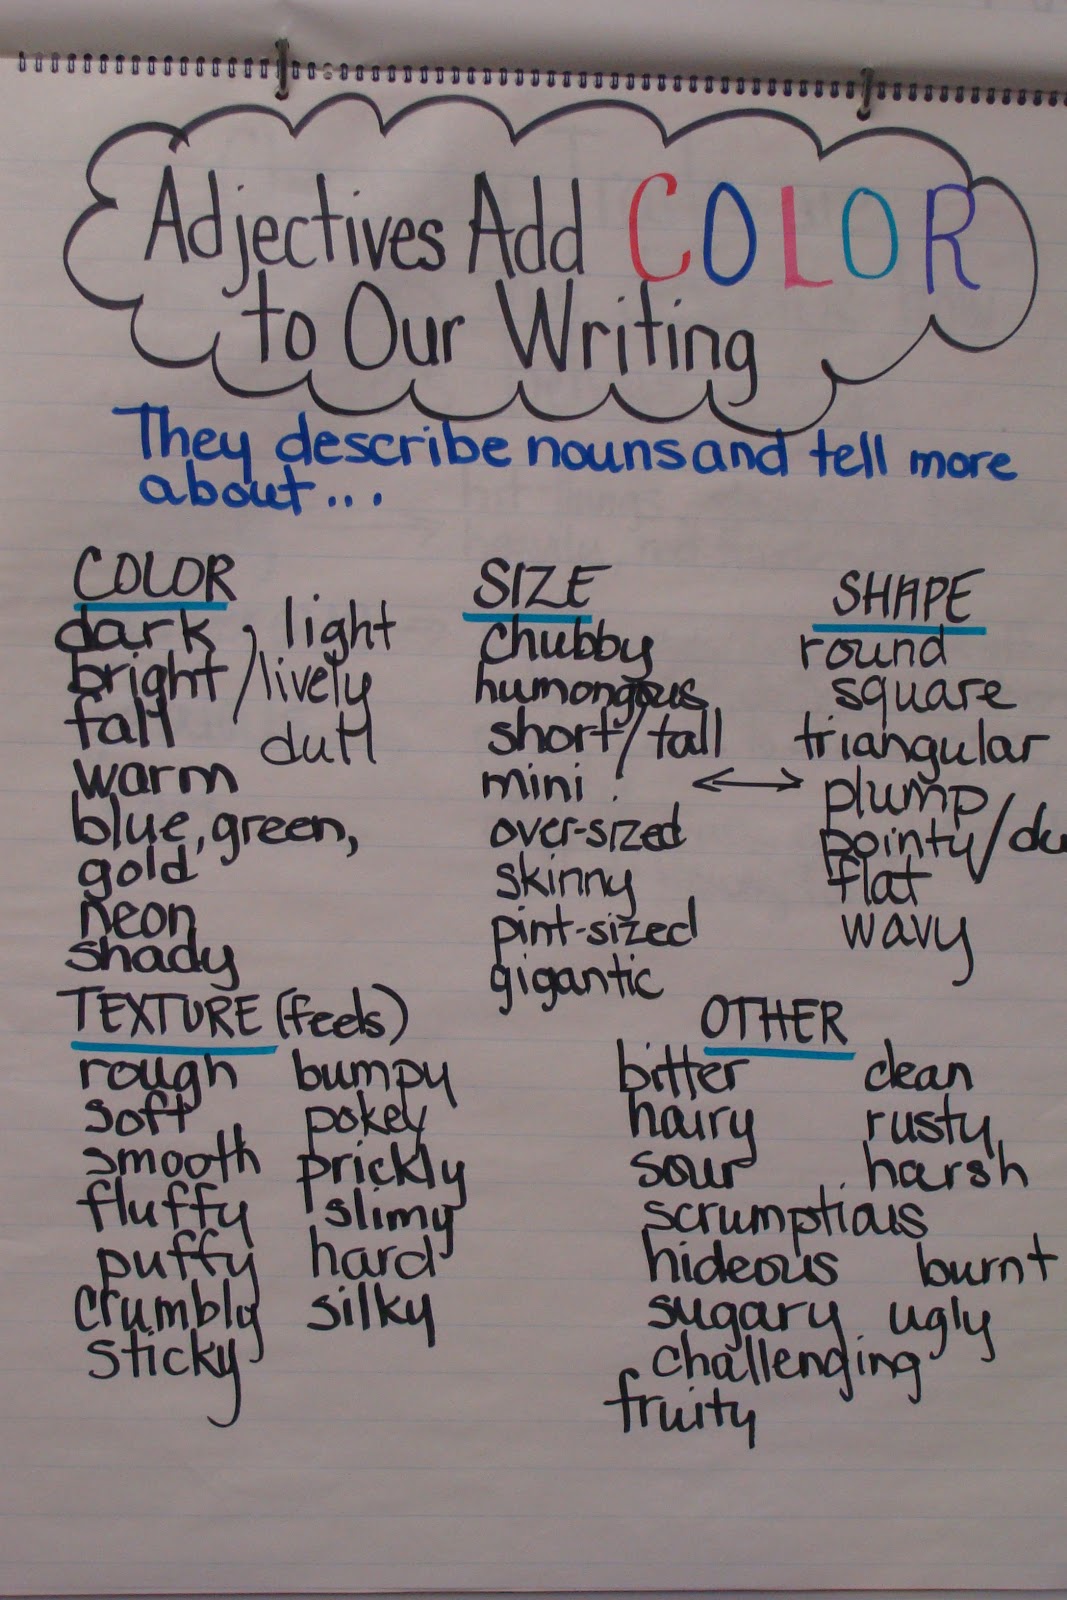 Adjectives Add COLOR
to Our Writing
They describe nouns and tell more
about...
COLOR
dark, light
bright/lively
fall dull
warm
blue, green,
gold
neon
shady
SIZE
chubby
humongous
short/tall
mini
over-sized
skinny
pint-sized
gigantic
SHAPE
round
square
triangular
plump
pointy/du
flat
wavy
TEXTURE (feels)
rough bumpy
soft pokey
smooth prickly
fluffy slimy
puffy hard
crumbly silky
sticky
OTHER
bitter clean
hairy rusty
sour harsh
scrumptious
hideous burnt
sugary ugly
challenging
fruity